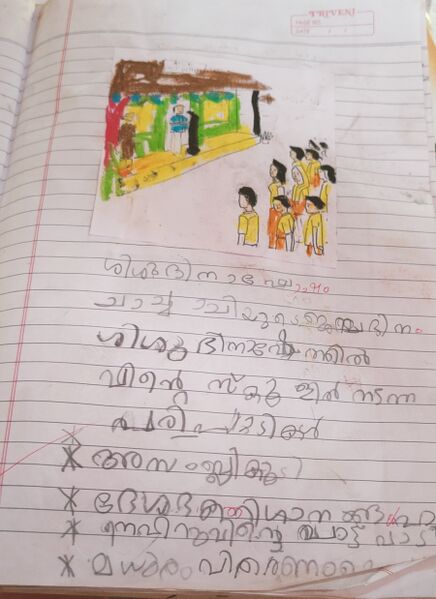 TRIVENI
PAGE NO.
DATE / /
ശിശുദിനാഘോഷം
ചാച്ചാജിയുടെ ജന്മദിനം
ശിശുദിനാഘോത്തിൽ
എന്റെ സ്കൂളിൽ നടന്ന
പരിപാടികൾ
* അസംബ്ലികൂടി
* ദേശഭക്തിഗാന
* പാട്ട് പാടി
* മധുരം വിതരണം